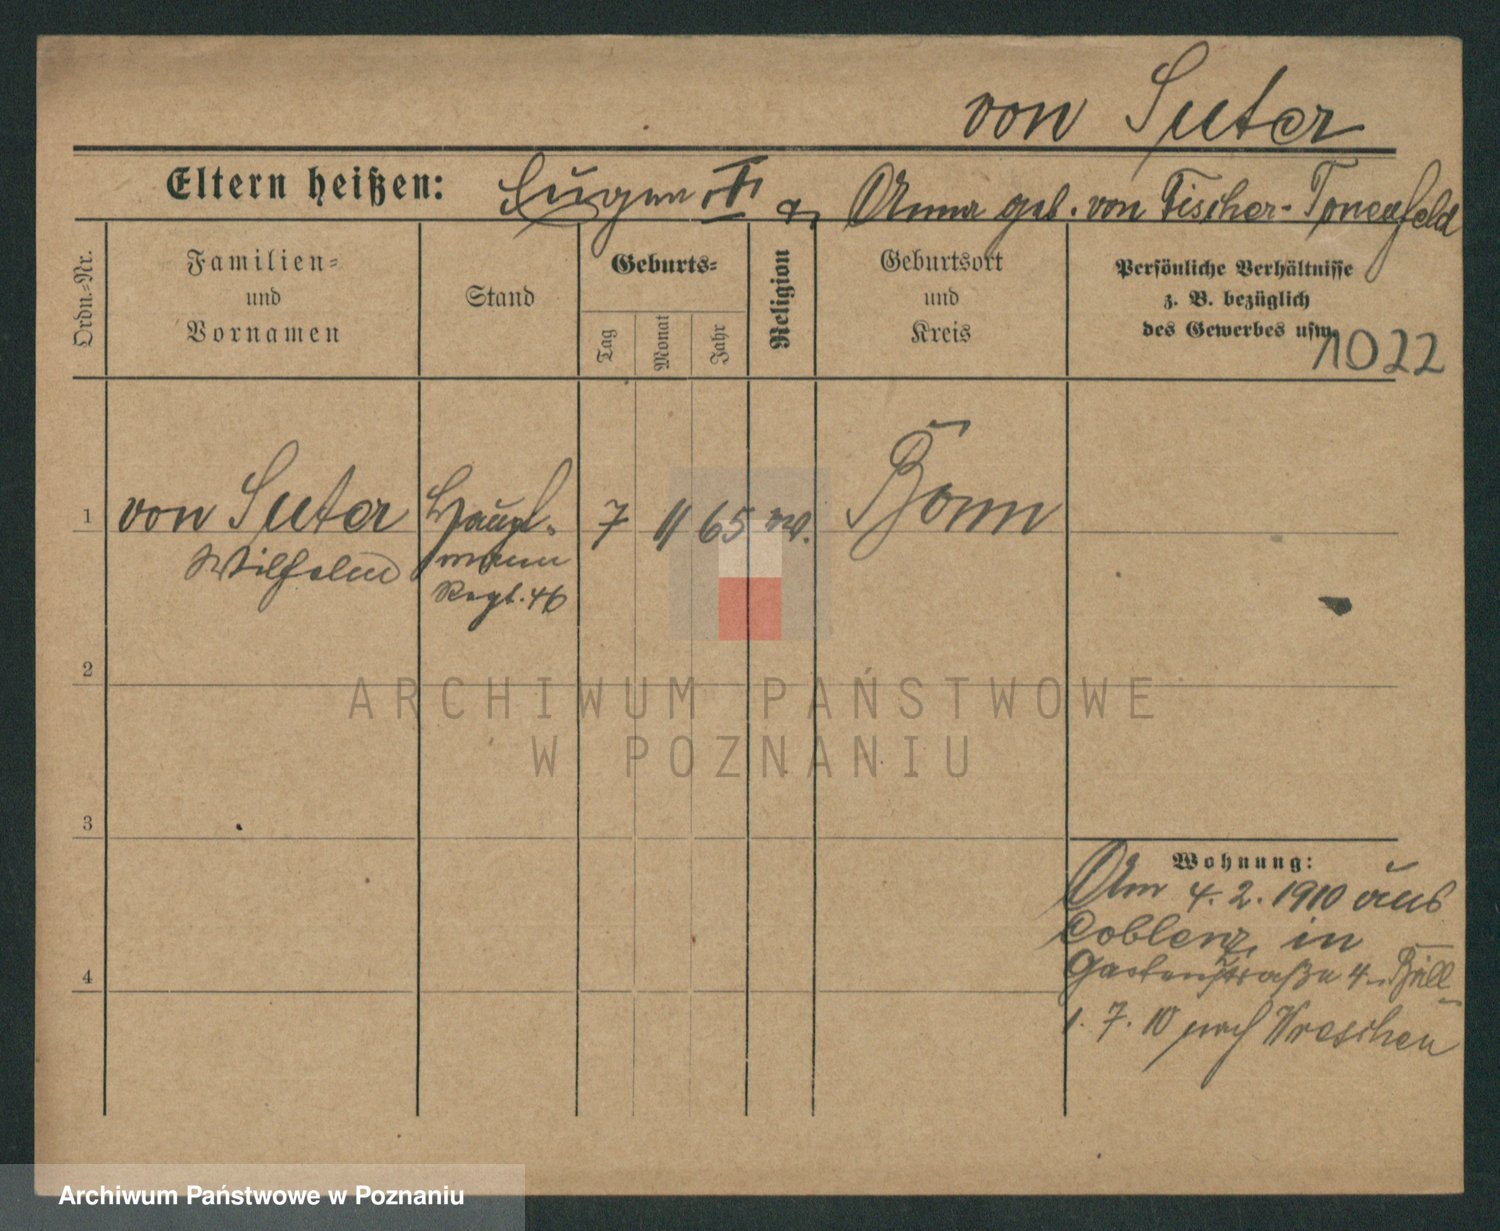 von Suter
Eltern heißen: Eugen † u. Anna geb. von Fischer-
Ordn.-Nr.
Familien-
und
Vornamen
Stand
Geburts-
Tag
Monat
Jahr
Religion
Geburtsort
und
Kreis
Persönliche Verhältnisse
z. B. bezüglich
des Gewerbes usw.
1022
1 von Suter Haupt- 7 11 65 ev. Bonn
Wilhelm mann
Regt. 46
2
ARCHIWUM PAŃSTWOWE
W POZNANIU
3
Wohnung:
Am 4. 2. 1910 aus
Coblenz in
Gartenstraße 4
4
1. 7. 10 nach Wreschen
Archiwum Państwowe w Poznaniu